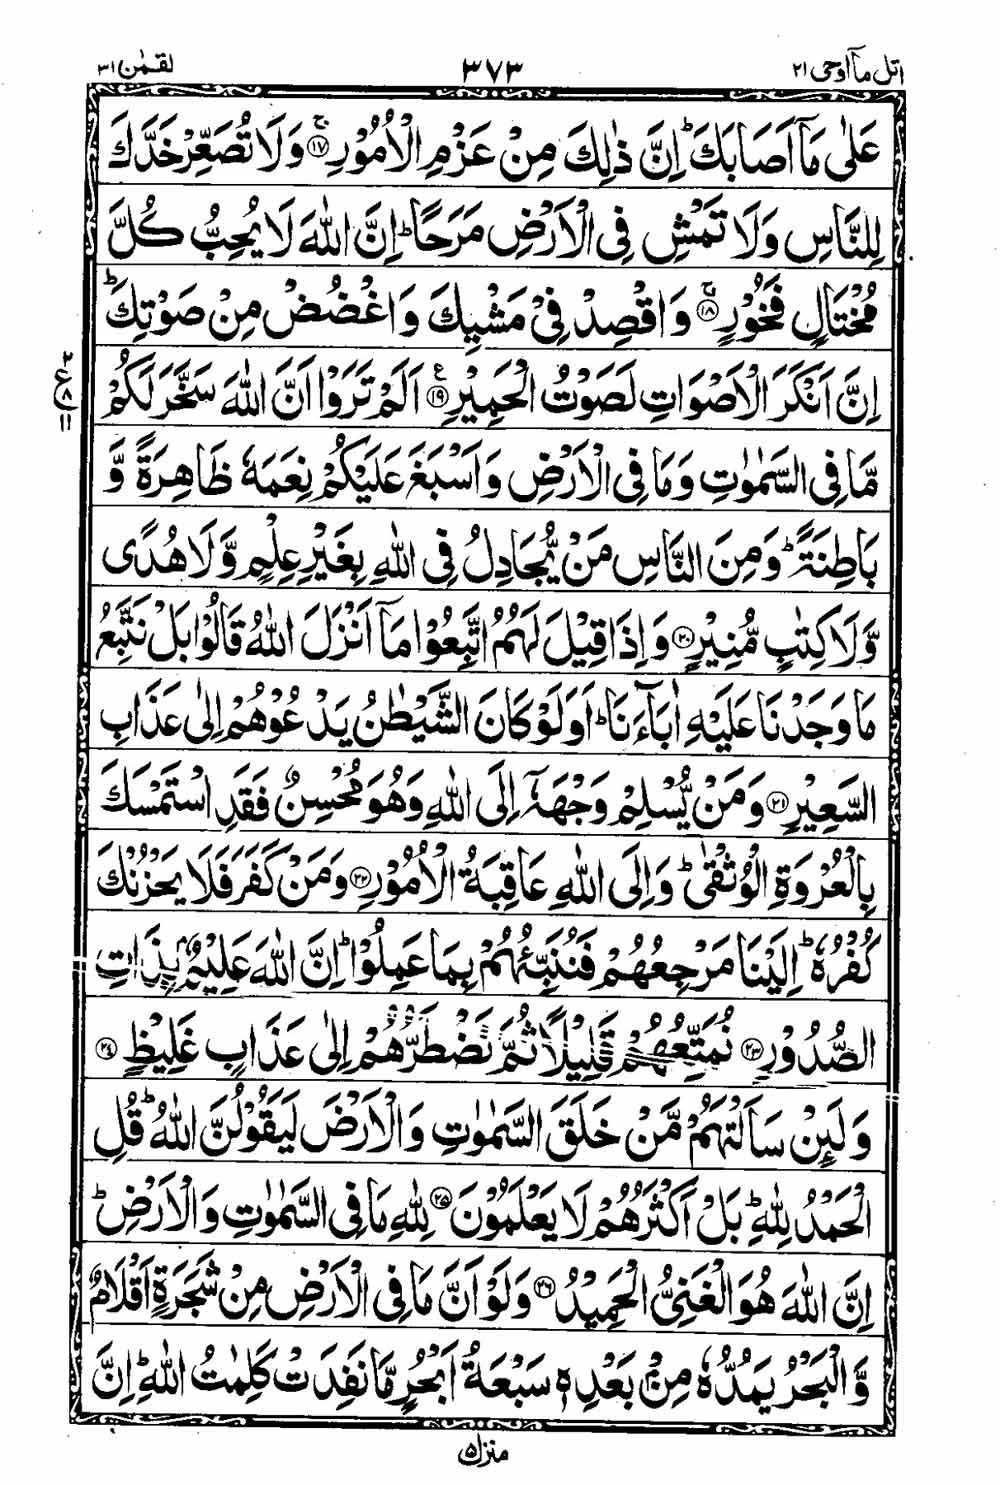 اتل مآ اوحی ۲۱ ۳۷۳ لقمٰن ۳۱
عَلٰى مَاۤ اَصَابَكَؕ اِنَّ ذٰلِكَ مِنْ عَزْمِ الْاُمُوْرِۚ۝۱۷ وَلَا تُصَعِّرْ خَدَّكَ
لِلنَّاسِ وَلَا تَمْشِ فِى الْاَرْضِ مَرَحًاؕ اِنَّ اللّٰهَ لَا يُحِبُّ كُلَّ
مُخْتَالٍ فَخُوْرٍۚ۝۱۸ وَاقْصِدْ فِىْ مَشْيِكَ وَاغْضُضْ مِنْ صَوْتِكَؕ
اِنَّ اَنْكَرَ الْاَصْوَاتِ لَصَوْتُ الْحَمِيْرِ۝۱۹ع اَلَمْ تَرَوْا اَنَّ اللّٰهَ سَخَّرَ لَكُمْ
۲ ع ۸ ۱۱
مَّا فِى السَّمٰوٰتِ وَمَا فِى الْاَرْضِ وَاَسْبَغَ عَلَيْكُمْ نِعَمَهٗ ظَاهِرَةً وَّ
بَاطِنَةًؕ وَمِنَ النَّاسِ مَنْ يُّجَادِلُ فِى اللّٰهِ بِغَيْرِ عِلْمٍ وَّلَا هُدًى
وَّلَا كِتٰبٍ مُّنِيْرٍ۝۲۰ وَاِذَا قِيْلَ لَهُمُ اتَّبِعُوْا مَاۤ اَنْزَلَ اللّٰهُ قَالُوْا بَلْ نَتَّبِعُ
مَا وَجَدْنَا عَلَيْهِ اٰبَآءَنَاؕ اَوَلَوْ كَانَ الشَّيْطٰنُ يَدْعُوْهُمْ اِلٰى عَذَابِ
السَّعِيْرِ۝۲۱ وَمَنْ يُّسْلِمْ وَجْهَهٗۤ اِلَى اللّٰهِ وَهُوَ مُحْسِنٌ فَقَدِ اسْتَمْسَكَ
بِالْعُرْوَةِ الْوُثْقٰىؕ وَاِلَى اللّٰهِ عَاقِبَةُ الْاُمُوْرِ۝۲۲ وَمَنْ كَفَرَ فَلَا يَحْزُنْكَ
كُفْرُهٗؕ اِلَيْنَا مَرْجِعُهُمْ فَنُنَبِّئُهُمْ بِمَا عَمِلُوْاؕ اِنَّ اللّٰهَ عَلِيْمٌۢ بِذَاتِ
الصُّدُوْرِ۝۲۳ نُمَتِّعُهُمْ قَلِيْلًا ثُمَّ نَضْطَرُّهُمْ اِلٰى عَذَابٍ غَلِيْظٍ۝۲۴
وَلَئِنْ سَاَلْتَهُمْ مَّنْ خَلَقَ السَّمٰوٰتِ وَالْاَرْضَ لَيَقُوْلُنَّ اللّٰهُؕ قُلِ
الْحَمْدُ لِلّٰهِؕ بَلْ اَكْثَرُهُمْ لَا يَعْلَمُوْنَ۝۲۵ لِلّٰهِ مَا فِى السَّمٰوٰتِ وَالْاَرْضِؕ
اِنَّ اللّٰهَ هُوَ الْغَنِىُّ الْحَمِيْدُ۝۲۶ وَلَوْ اَنَّ مَا فِى الْاَرْضِ مِنْ شَجَرَةٍ اَقْلَامٌ
وَّالْبَحْرُ يَمُدُّهٗ مِنْۢ بَعْدِهٖ سَبْعَةُ اَبْحُرٍ مَّا نَفِدَتْ كَلِمٰتُ اللّٰهِؕ اِنَّ
منزل ۵